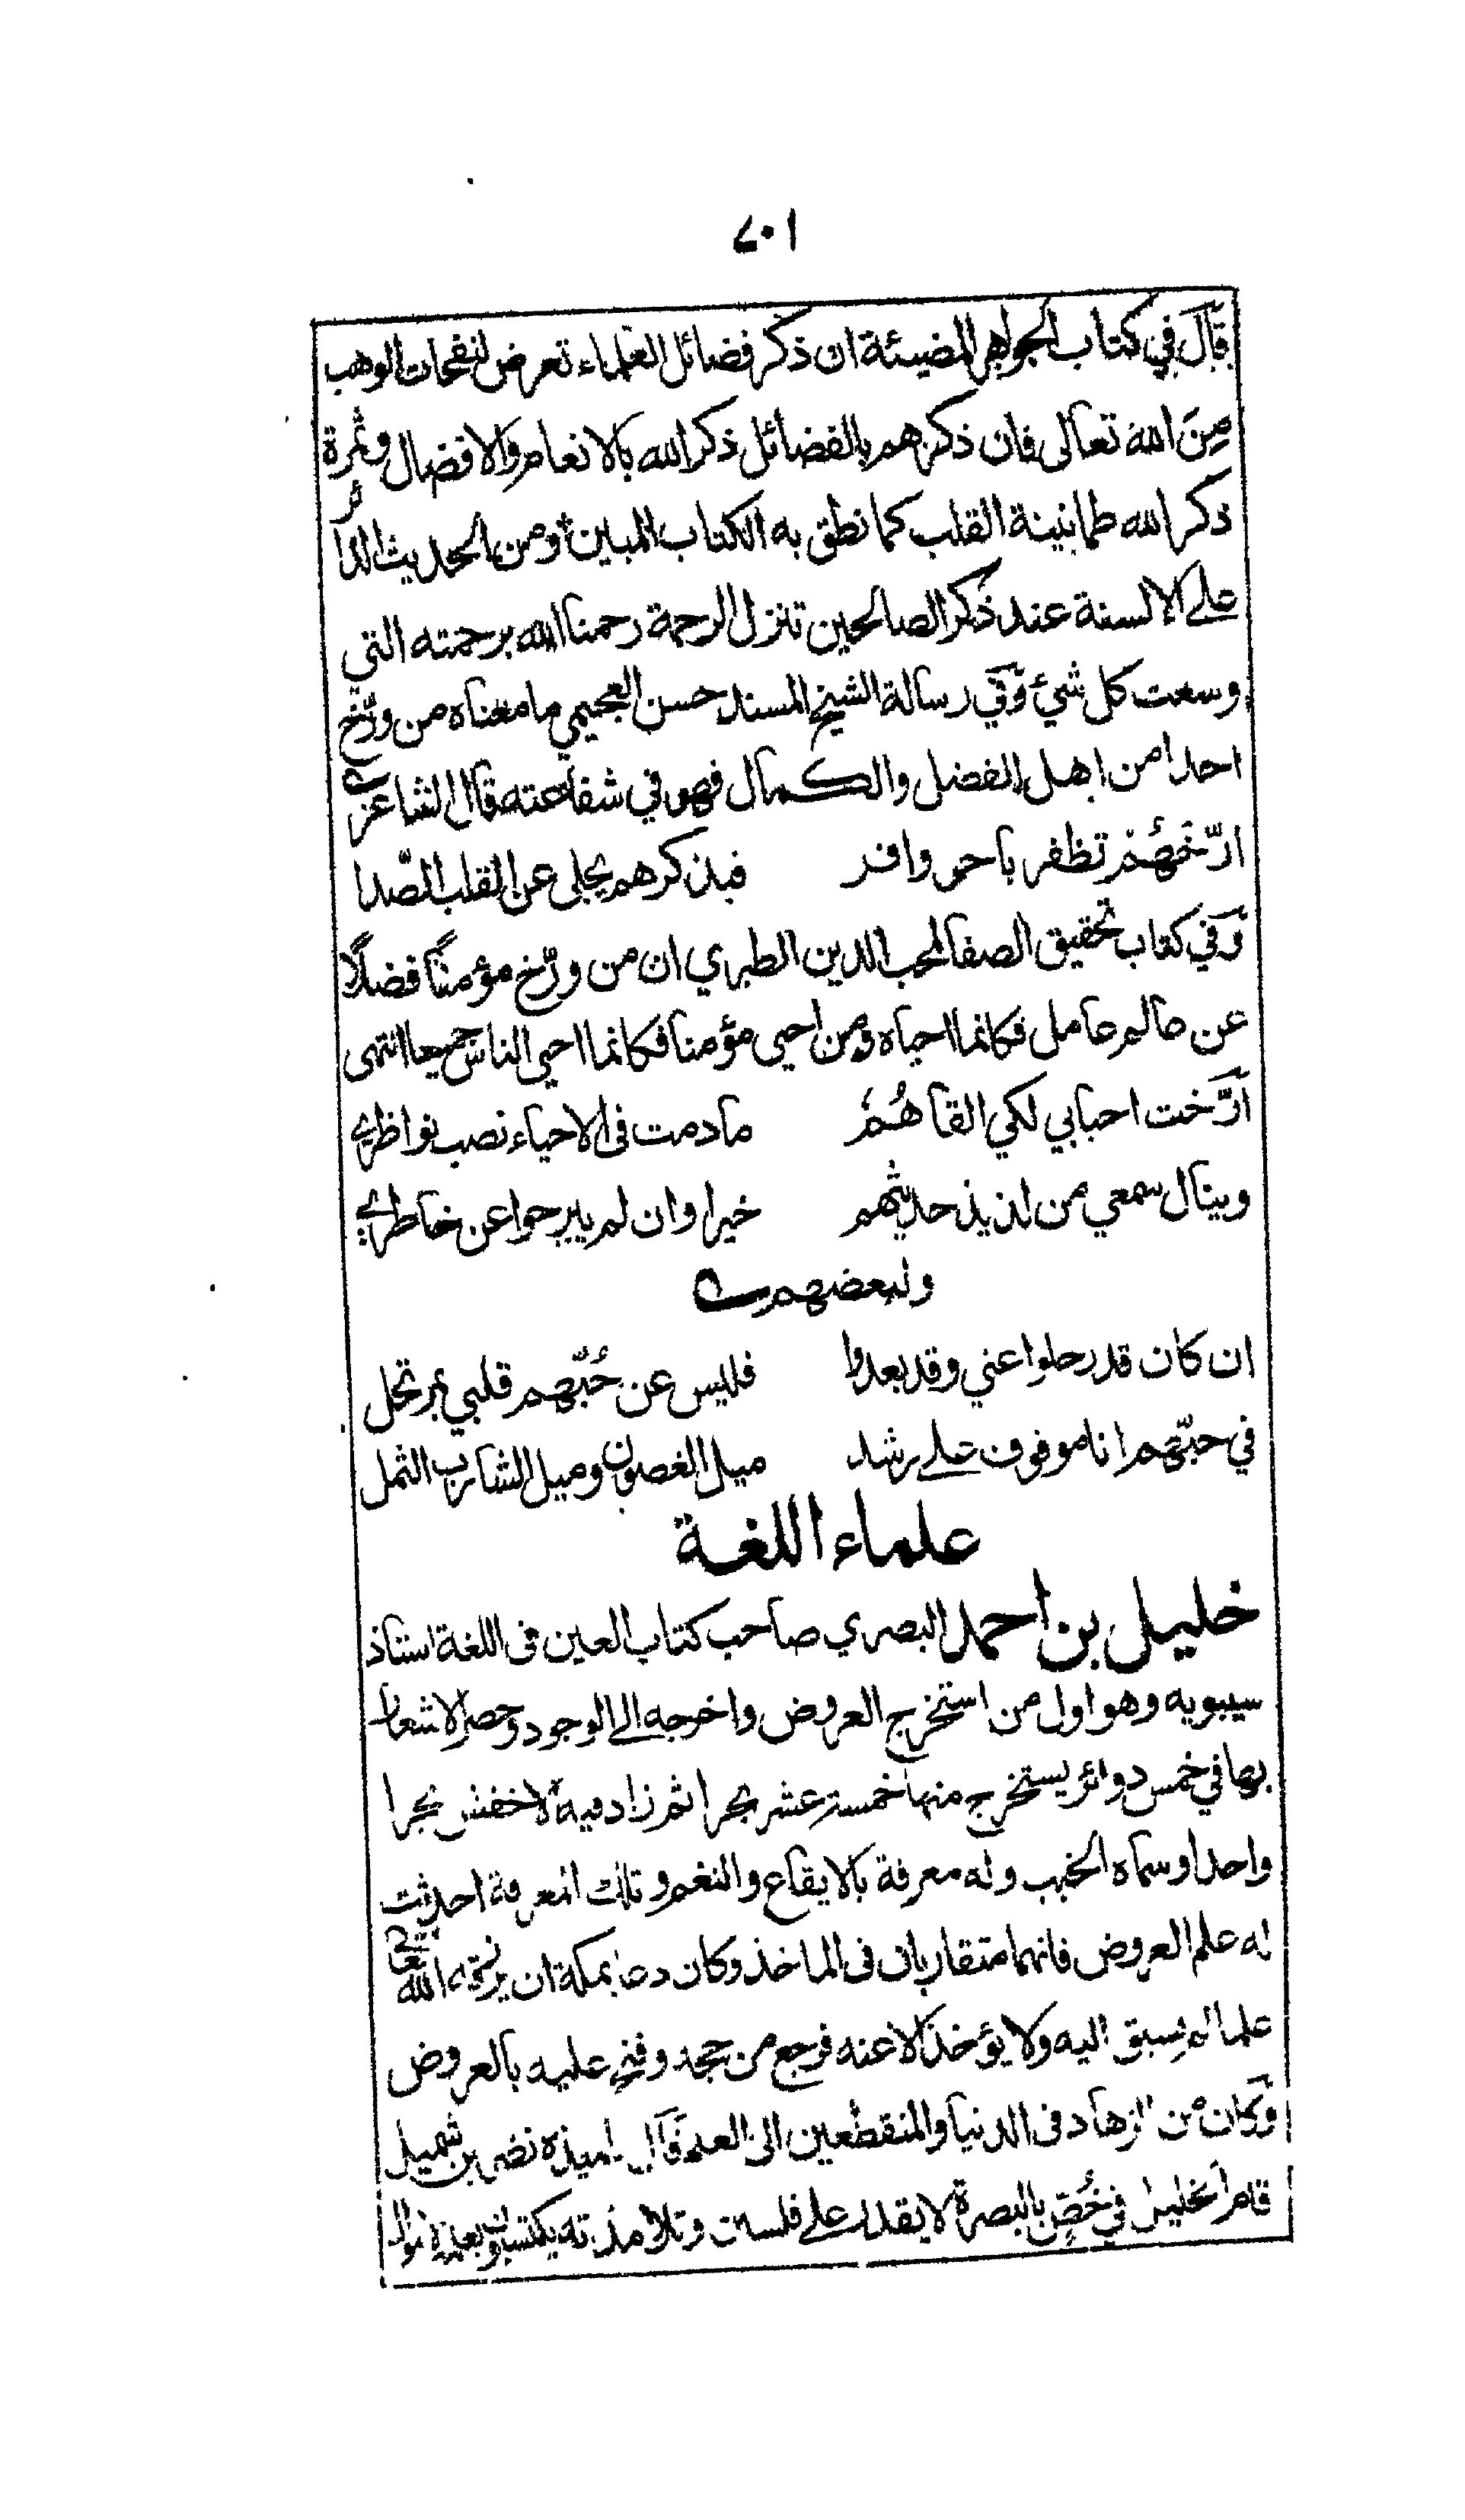 ٧٠١
قال في كتاب الجواهر المضيئة ان ذكر فضائل العلماء تعرض لنفحات الوهب
مِنَ الله تعالى فان ذكرهم بالفضائل ذكر الله بالانعام والافضال وثمرة
ذكر الله طمانينة القلب كما نطق به الكتاب المبين ومن الحديث الدائر
على الالسنة عند ذكر الصالحين تنزل الرحمة رحمنا الله برحمته التي
وسعت كل شيئ وفي رسالة الشيخ المسند حسن العجيمي ما معناه من ورّخ
احدا من اهل الفضل والكمال فهو في شفاعته قال الشاعر
ارّخهُمْ تظفر باجر وافر فبذكرهم يجلى عن القلب الصّدا
وفي كتاب تحقيق الصفا لمحب الدين الطبري ان من ورّخ مؤمنًا فضلًا
عن عالم عامل فكانما احياه ومن احيى مؤمنا فكانما احيى الناس جميعا انتهى
ارَّخت احبابي لكي القاهُمْ ما دمت فى الاحياء نصب نواظري
وينال سمعي من لذيذ حديثهم خيرا وان لم يبرحوا عن خاطري
ولبعضهم
ان كان قد رحلوا عني وقد بعدوا فليس عن حُبّهم قلبي بمرتحل
في حبّهم انا موفوف على رشد ميل الغصون وميل الشارب الثمل
علماء اللغة
خليل بن احمد البصري صاحب كتاب العين فى اللغة استاذ
سيبويه وهو اول من استخرج العروض واخرجه الى الوجود وحصر الاشعار
بها في خمس دوائر يستخرج منها خمسة عشر بحرا ثم زاد فيه الاخفش بحرا
واحدا وسماه الخبب وله معرفة بالايقاع والنغم وتلك المعرفة احدثت
له علم العروض فانهما متقاربان فى الماخذ وكان دعا بمكة ان يرزقه الله تعالى
علما لم يسبق اليه ولا يؤخذ الا عنه فرجع من حجه وفتح عليه بالعروض
وكان من الزهاد فى الدنيا والمنقطعين الى العلم قال تلميذه نضر بن شميل
قام الخليل في خُصّ بالبصرة لا يقدر على فلسين وتلامذته يكتسبون بعلمه اموال